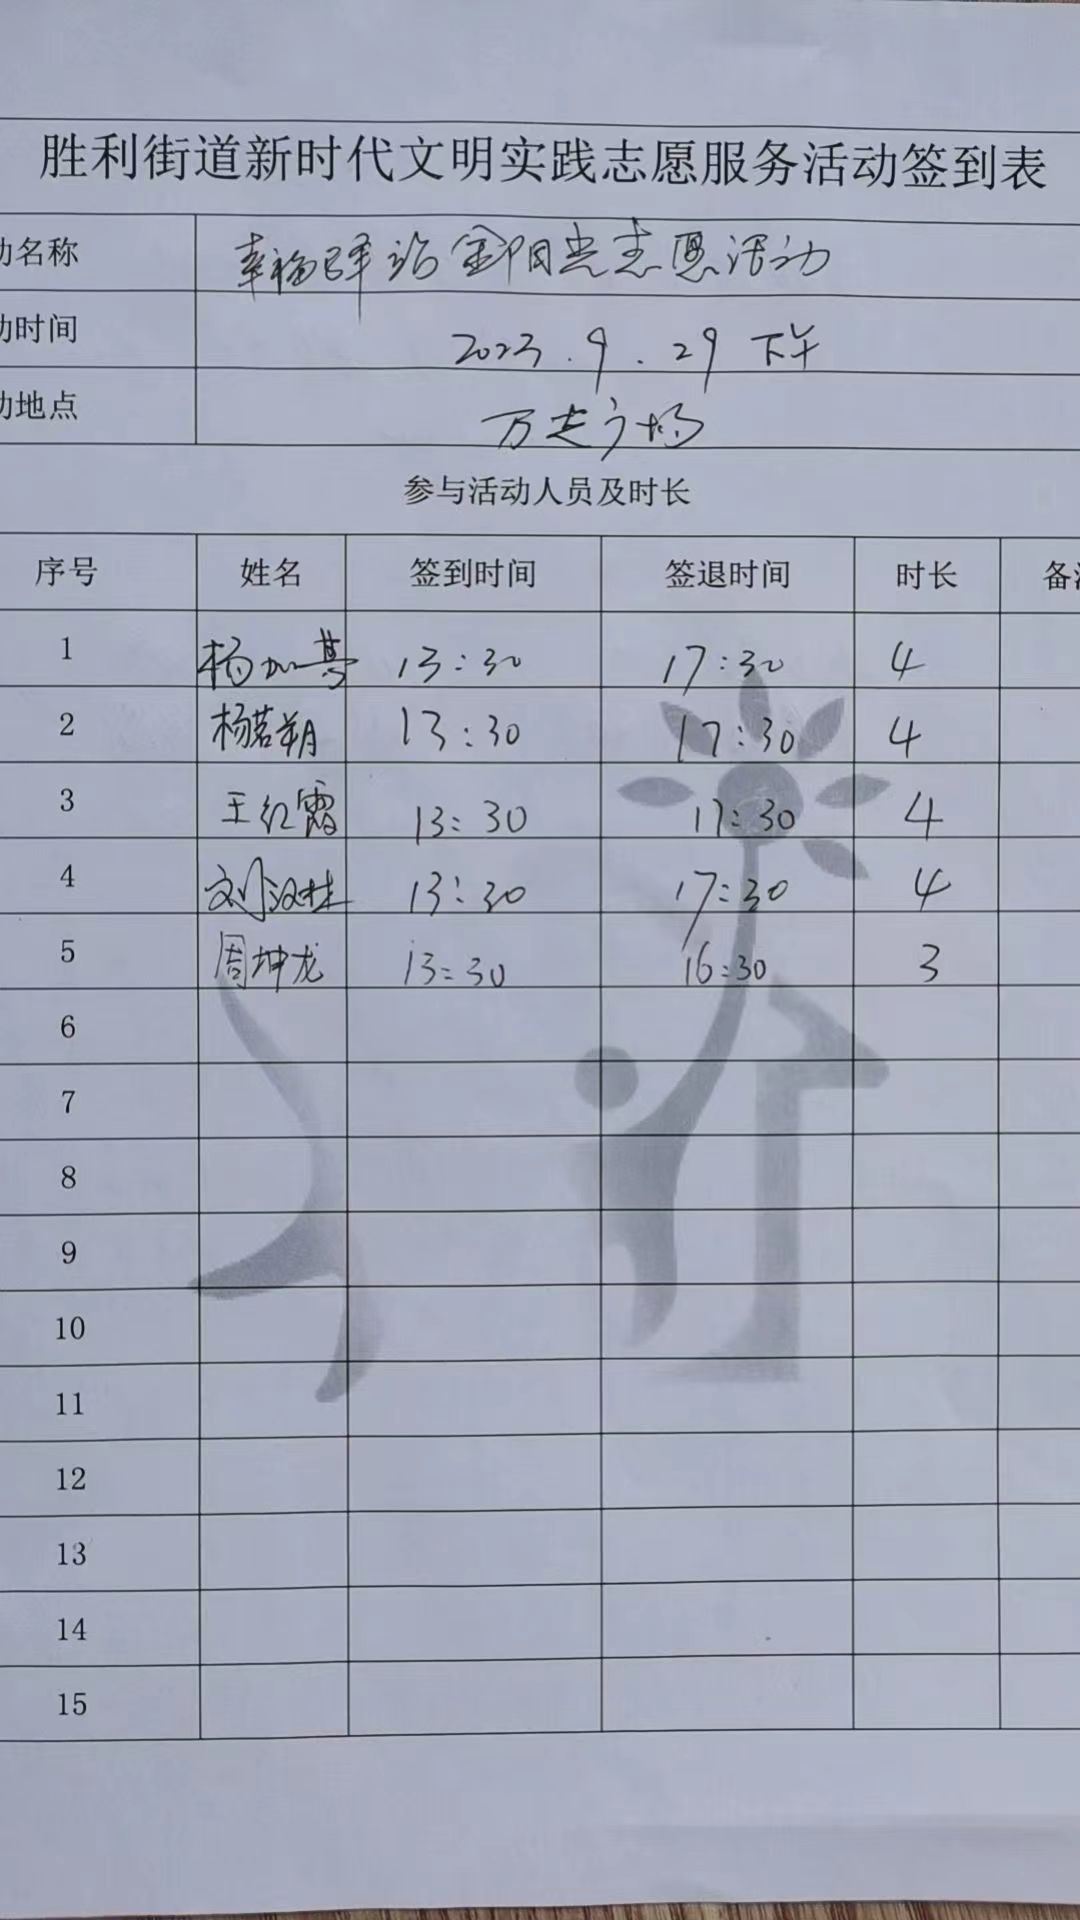 胜利街道新时代文明实践志愿服务活动签到表
动名称 幸福驿站金阳光志愿活动
动时间 2023.9.29 下午
动地点 万达广场
参与活动人员及时长
序号 姓名 签到时间 签退时间 时长 备注
1 杨加 13:30 17:30 4
2 杨若朔 13:30 17:30 4
3 王红霞 13:30 17:30 4
4 刘汉林 13:30 17:30 4
5 周坤龙 13:30 16:30 3
6
7
8
9
10
11
12
13
14
15